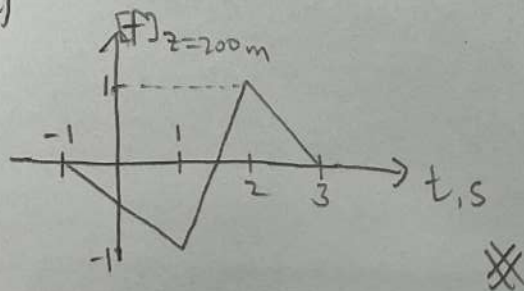 [f]z=200m
1
-1 1 2 3 t,s
-1